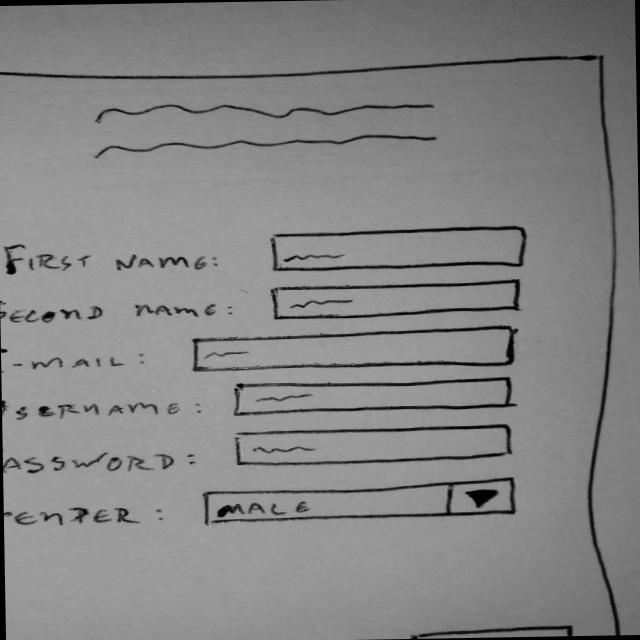 FIRST NAME:
SECOND NAME:
-MAIL:
USERNAME:
ASSWORD:
ENDER:
MALE